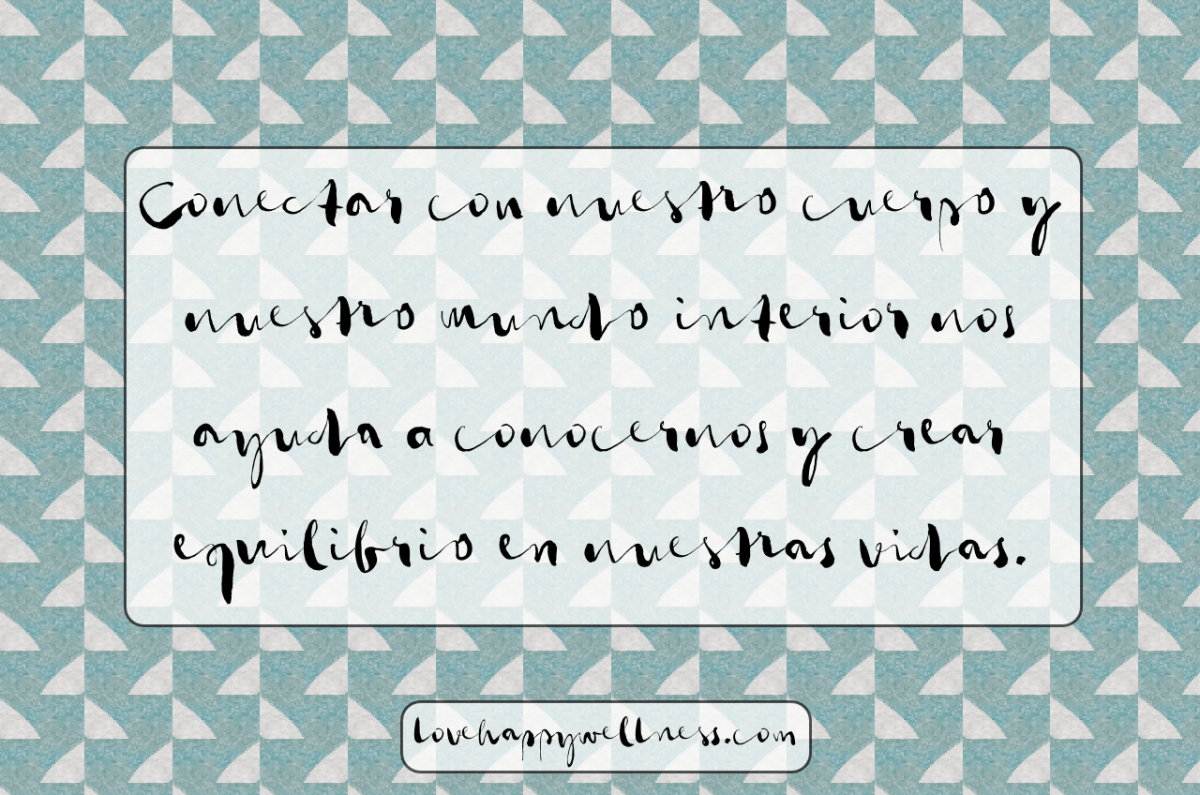 Conectar con nuestro cuerpo y
nuestro mundo interior nos
ayuda a conocernos y crear
equilibrio en nuestras vidas.
lovehappywellness.com